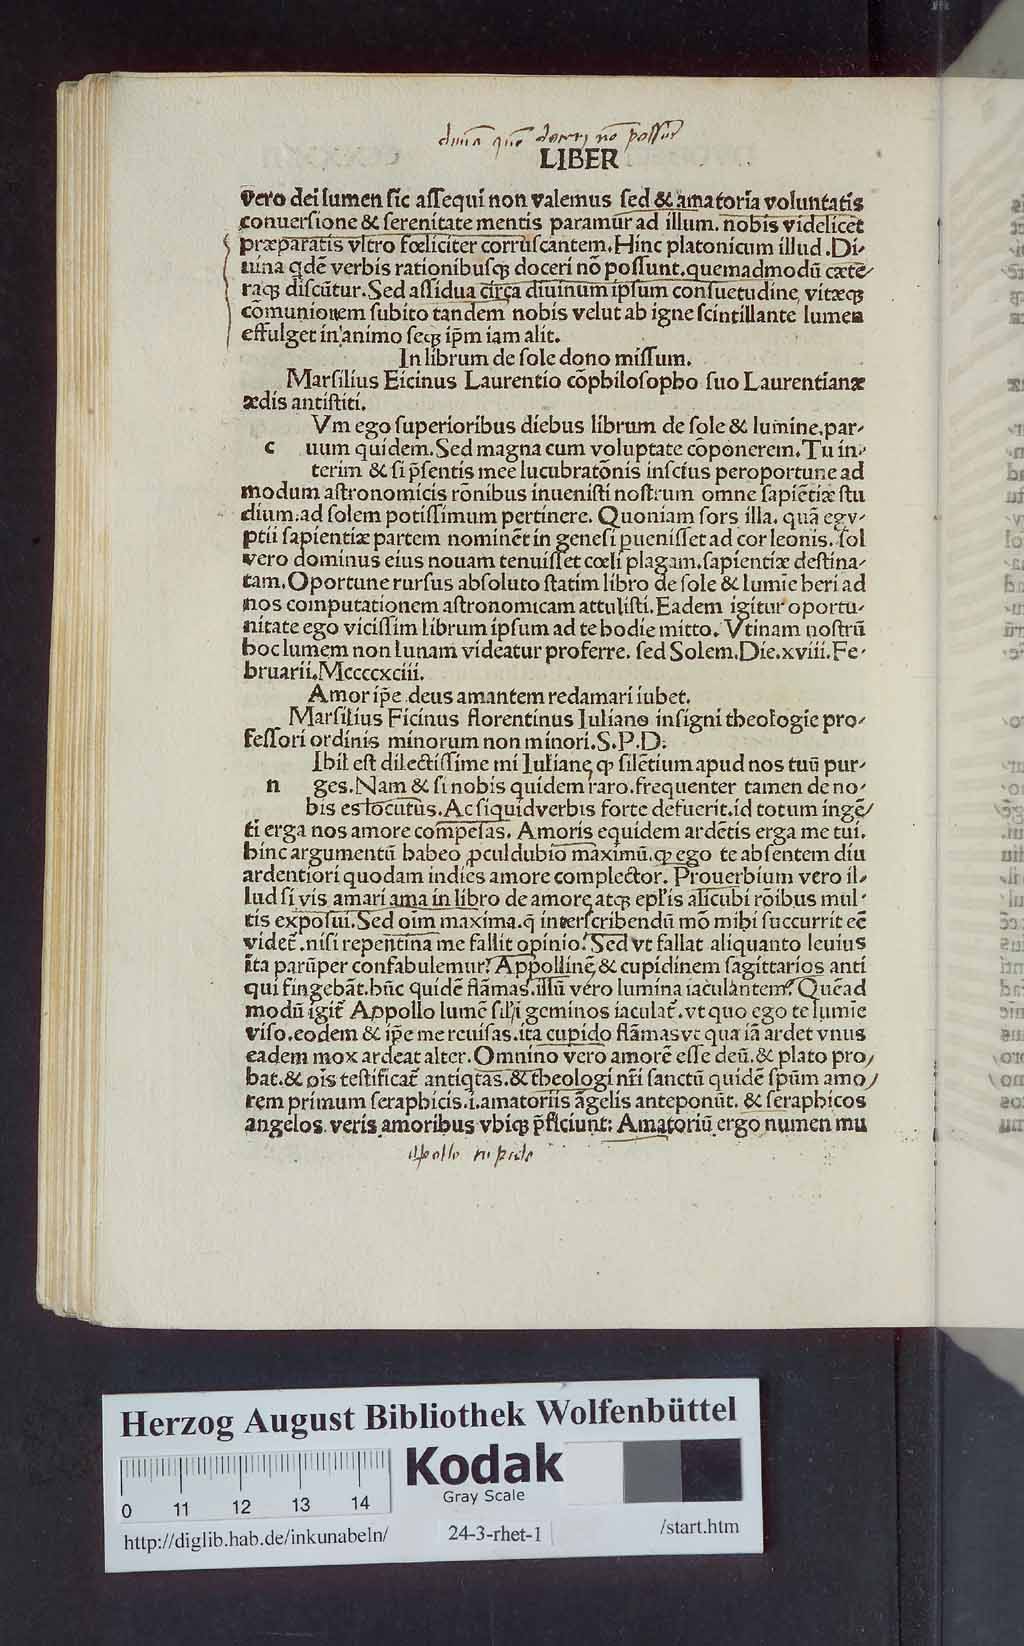 diuina quidē doceri nō possūt
LIBER
vero dei lumen sic assequi non valemus sed & amatoria voluntatis
conuersione & serenitate mentis paramur ad illum. nobis videlicet
præparatis vltro fœliciter corruscantem. Hinc platonicum illud. Di-
uina qdē verbis rationibusq; doceri nō possunt. quemadmodū cæte/
raq; discūtur. Sed assidua circa diuinum ipsum consuetudine, vitæq;
cōmunionem subito tandem nobis velut ab igne scintillante lumen
effulget in animo seq; ip̄m iam alit.
In librum de sole dono missum.
Marsilius Eicinus Laurentio cōphilosopho suo Laurentianæ
ædis antistiti.
Vm ego superioribus diebus librum de sole & lumine, par-
c uum quidem. Sed magna cum voluptate cōponerem. Tu in-
terim & si p̄sentis mee lucubratōnis inscius peroportune ad
modum astronomicis rōnibus inuenisti nostrum omne sapiētiæ stu
dium: ad solem potissimum pertinere. Quoniam sors illa. quā egy-
ptii sapientiæ partem nominēt in genesi puenisset ad cor leonis. sol
vero dominus eius nouam tenuisset cœli plagam. sapientiæ destina-
tam. Oportune rursus absoluto statim libro de sole & lumīe heri ad
nos computationem astronomicam attulisti. Eadem igitur oportu-
nitate ego vicissim librum ipsum ad te hodie mitto. Vtinam nostrū
hoc lumem non lunam videatur proferre. sed Solem. Die. xviii. Fe-
bruarii. Mccccxciii.
Amor ip̄e deus amantem redamari iubet.
Marsilius Ficinus florentinus Iuliano insigni theologie pro-
fessori ordinis minorum non minori. S. P. D.
Ihil est dilectissime mi Iuliane, q silētium apud nos tuū pur-
n ges. Nam & si nobis quidem raro. frequenter tamen de no-
bis es locutus. Ac siquid verbis forte defuerit. id totum ingē/
ti erga nos amore compēsas. Amoris equidem ardētis erga me tui.
hinc argumentū habeo pculdubio maximū. q ego te absentem diu
ardentiori quodam indies amore complector. Prouerbium vero il-
lud si vis amari ama in libro de amore, atq; epl̄is alicubi rōibus mul-
tis exposui. Sed oīm maxima. q̄ interscribendū mō mihi succurrit eē
videt̄. nisi repentina me fallit opinio. Sed vt fallat aliquanto leuius
īta parūper confabulemur? Appollinē & cupidinem sagittarios anti
qui fingebāt. hūc quidē flāmas. illū vero lumina iaculantem? Quēad
modū igit̄ Appollo lumē sibi geminos iaculat̄. vt quo ego te lumīe
viso. eodem & ip̄e me reuisas. ita cupido flāmas vt qua iā ardet vnus
eadem mox ardeat alter. Omnino vero amorē esse deū. & plato pro/
bat. & oīs testificat̄ antiqtas. & theologi nr̄i sanctū quidē sp̄um amo/
rem primum seraphicis. i. amatoriis āgelis anteponūt. & seraphicos
angelos. veris amoribus vbiq; p̄ficiunt: Amatoriū ergo numen mu
Apollo
Herzog August Bibliothek Wolfenbüttel
Kodak
Gray Scale
0 11 12 13 14
http://diglib.hab.de/inkunabeln/ 24-3-rhet-1 /start.htm